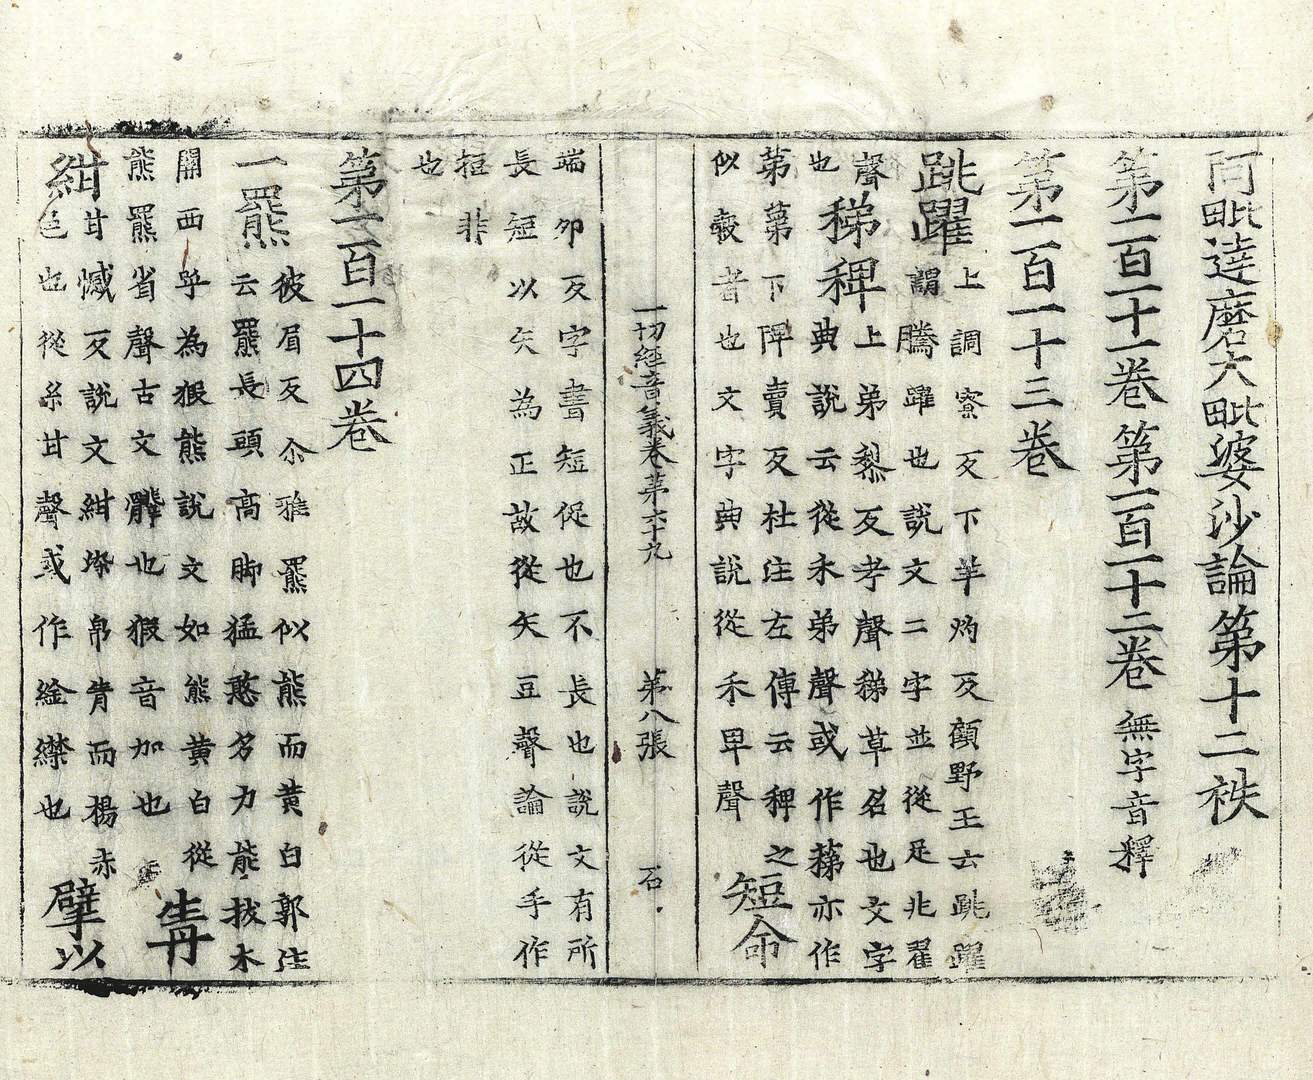 阿毗達磨大毗婆沙論第十二袟
第一百一十一卷第一百一十二卷無字音釋
第一百一十三卷
跳躍上調寮反下羊灼反顧野王云跳躍
謂騰躍也說文二字並從足兆翟
聲也
稊稗上弟黎反考聲稊草名也文字
典說云從禾弟聲或作蕛亦作
第苐下牌賣反杜注左傳云稗之
似穀者也文字典說從禾卑聲
短命
一切經音義卷第六十九 第八張 石
端夘反字書短促也不長也說文有所
長短以矢為正故從矢豆聲論從手作
挋非
也
第一百一十四卷
一羆彼眉反尒雅羆似熊而黄白郭注
云羆長頭高脚猛憨多力能拔木
關西呼為猳熊說文如熊黄白從
熊羆省聲古文䪐也猳音加也
青
紺甘憾反說文紺染帛青而楊赤
色也從糸甘聲或作縊襟也
擘以